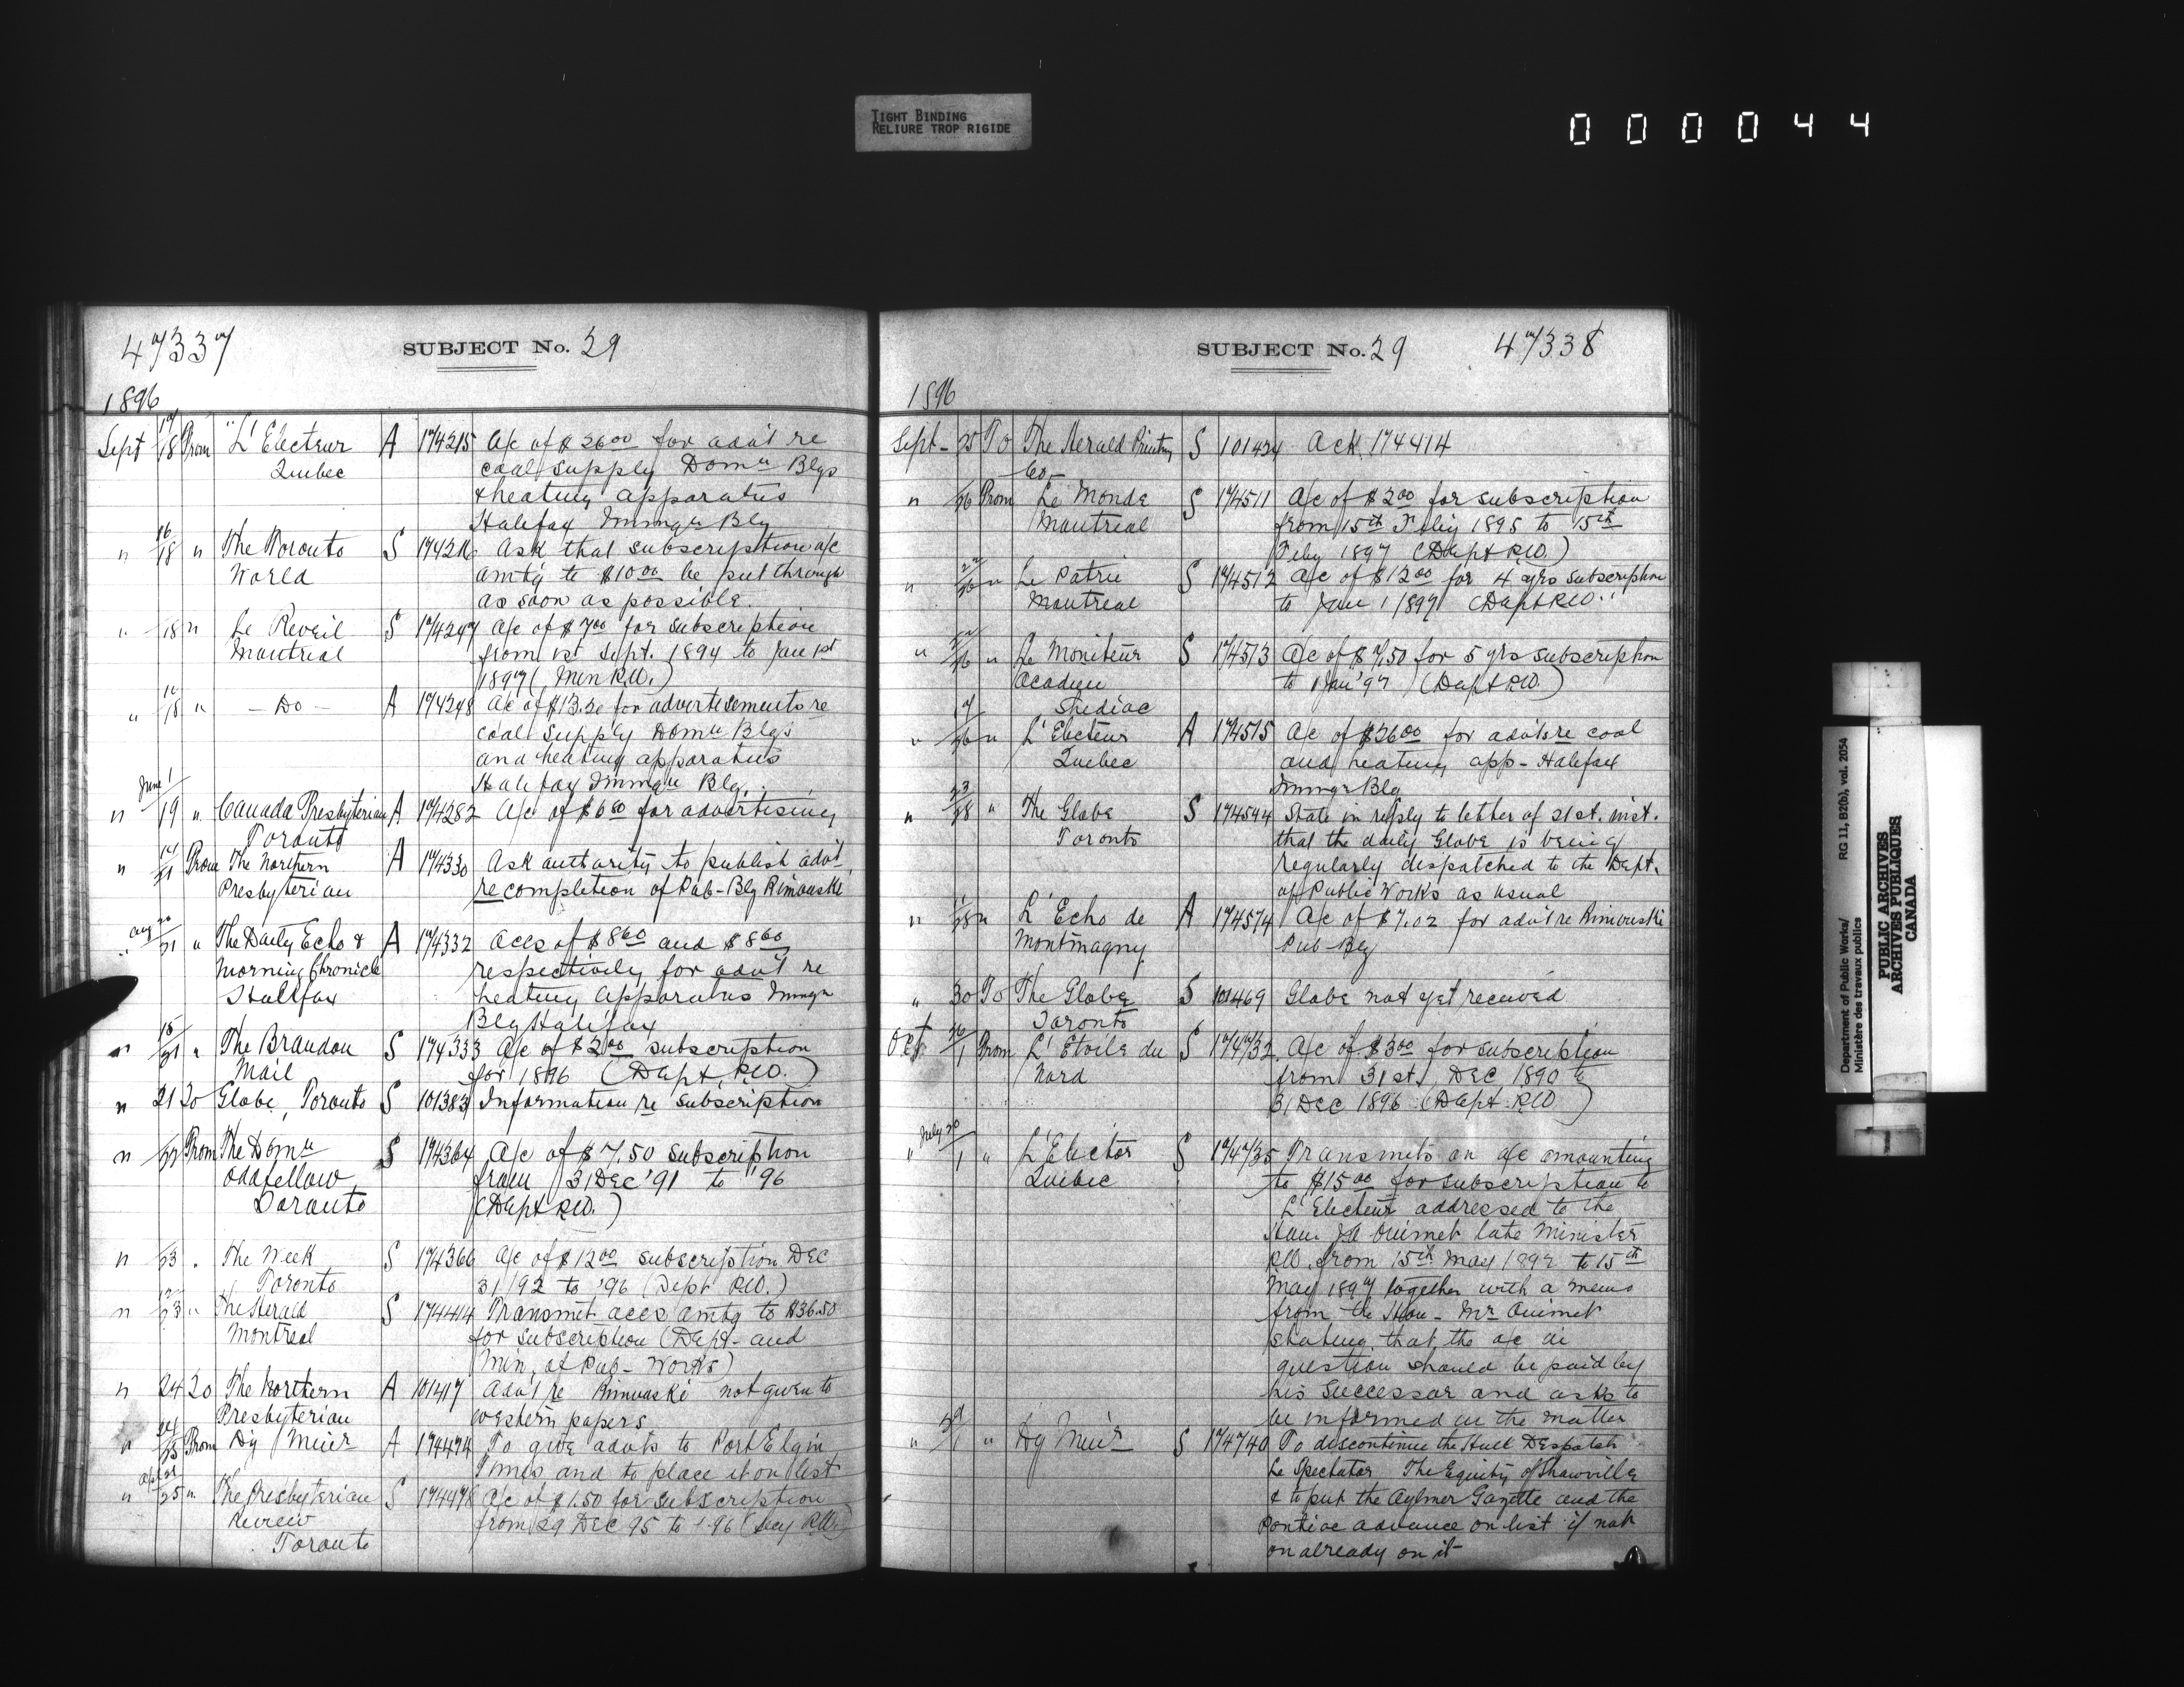 TIGHT BINDING
RELIURE TROP RIGIDE
000044
47337
SUBJECT No. 29
1896
Sept 17/18 From "L'Electeur A 174215 A/c of $26.00 for advt re
Quebec coal supply Domn Blgs
& heating apparatus
Halifax Immgn Blg
" 16/18 " The Toronto S 174216 Ask that subscription a/c
World amtg to $10.00 be put through
as soon as possible.
" 18 " Le Reveil S 174247 A/c of $7.00 for subscription
Montreal from 1st Sept. 1894 to Jan 1st
1897 (Min P.W.)
" 16/18 " - Do - A 174248 A/c of $13.20 for advertisements re
coal supply Domn Blgs
and heating apparatus
Halifax Immgn Blg.
June 1
" 19 " Canada Presbyterian A 174282 A/c of $6.60 for advertising
Toronto
" 14/21 From The Northern A 174330 Ask authority to publish advt
Presbyterian re completion of Pub-Blg Rimouski
" Aug 20/21 " The Daily Echo & A 174332 Accs of $8.60 and $8.60
Morning Chronicle respectively for advt re
Halifax heating apparatus Immgn
Blg Halifax
" 18/21 " The Brandon S 174333 A/c of $2.00 subscription
Mail for 1896 (Dept. P.W.)
" 21 To Globe, Toronto S 101383 Information re subscription
" 22 From The Domn S 174364 A/c of $7.50 subscription
Oddfellow from 31 Dec '91 to '96
Toronto (Dept P.W.)
" 23 . The Week S 174366 A/c of $12.00 subscription Dec
Toronto 31/92 to '96 (Dept P.W.)
" 23 " The Herald S 174414 Transmit accs amtg to $36.50
Montreal for subscription (Dept- and
Min. of Pub- Works)
" 24 To The Northern A 101417 Advt re Rimouski not given to
Presbyterian western papers
" 24/25 From Dy Min'r A 174474 To give advts to Port Elgin
Times and to place it on list
" 25 " The Presbyterian S 174478 A/c of $1.50 for subscription
Review from 29 Dec 95 to '96 (Secy P.W.)
Toronto
SUBJECT No. 29 47338
1896
Sept - 25 To The Herald Printing S 101424 Ack 174414
Co-
" 26 From Le Monde S 174511 A/c of $2.00 for subscription
Montreal from 15th Feby 1895 to 15th
Feby 1897 (Dept P.W.)
" 22/26 " La Patrie S 174512 A/c of $12.00 for 4 yrs subscription
Montreal to Jan 1 1897 (Dept P.W.)
" 26 " Le Moniteur S 174513 A/c of $7.50 for 5 yrs subscription
Acadien to 1 Jan '97 (Dept P.W.)
Shediac
" 17/26 " L'Electeur A 174515 A/c of $26.00 for advts re coal
Quebec and heating app- Halifax
Immgn Blg
" 23/28 " The Globe S 174544 State in reply to letter of 21st. inst.
Toronto that the daily Globe is being
regularly dispatched to the Dept.
of Public Works as usual
" 28 " L'Echo de A 174574 A/c of $7.02 for advt re Rimouski
Montmagny Pub-Blg
" 30 To The Globe S 101469 Globe not yet received
Toronto
Oct 26/1 From L'Etoile du S 174732 A/c of $3.00 for subscription
Nord from 31st. Dec 1890 to
31 Dec 1896 (Dept. P.W.)
July 20
" 1 " L'Elector S 174735 Transmits an a/c amounting
Quebec to $15.00 for subscription to
L'Electeur addressed to the
Hon. J A Ouimet late Minister
P.W. from 15th May 1892 to 15th
May 1897 together with a memo
from the Hon- Mr Ouimet
stating that the a/c in
question should be paid by
his successor and asks to
be informed in the matter
" 1 " Dy Min'r S 174740 To discontinue the Hull Despatch
Le Spectator, The Equity of Shawville
& to put the Aylmer Gazette and the
Pontiac advance on list if not
on already on it
Department of Public Works/ RG 11, B2(b), vol. 2054
Ministère des travaux publics
PUBLIC ARCHIVES
ARCHIVES PUBLIQUES
CANADA